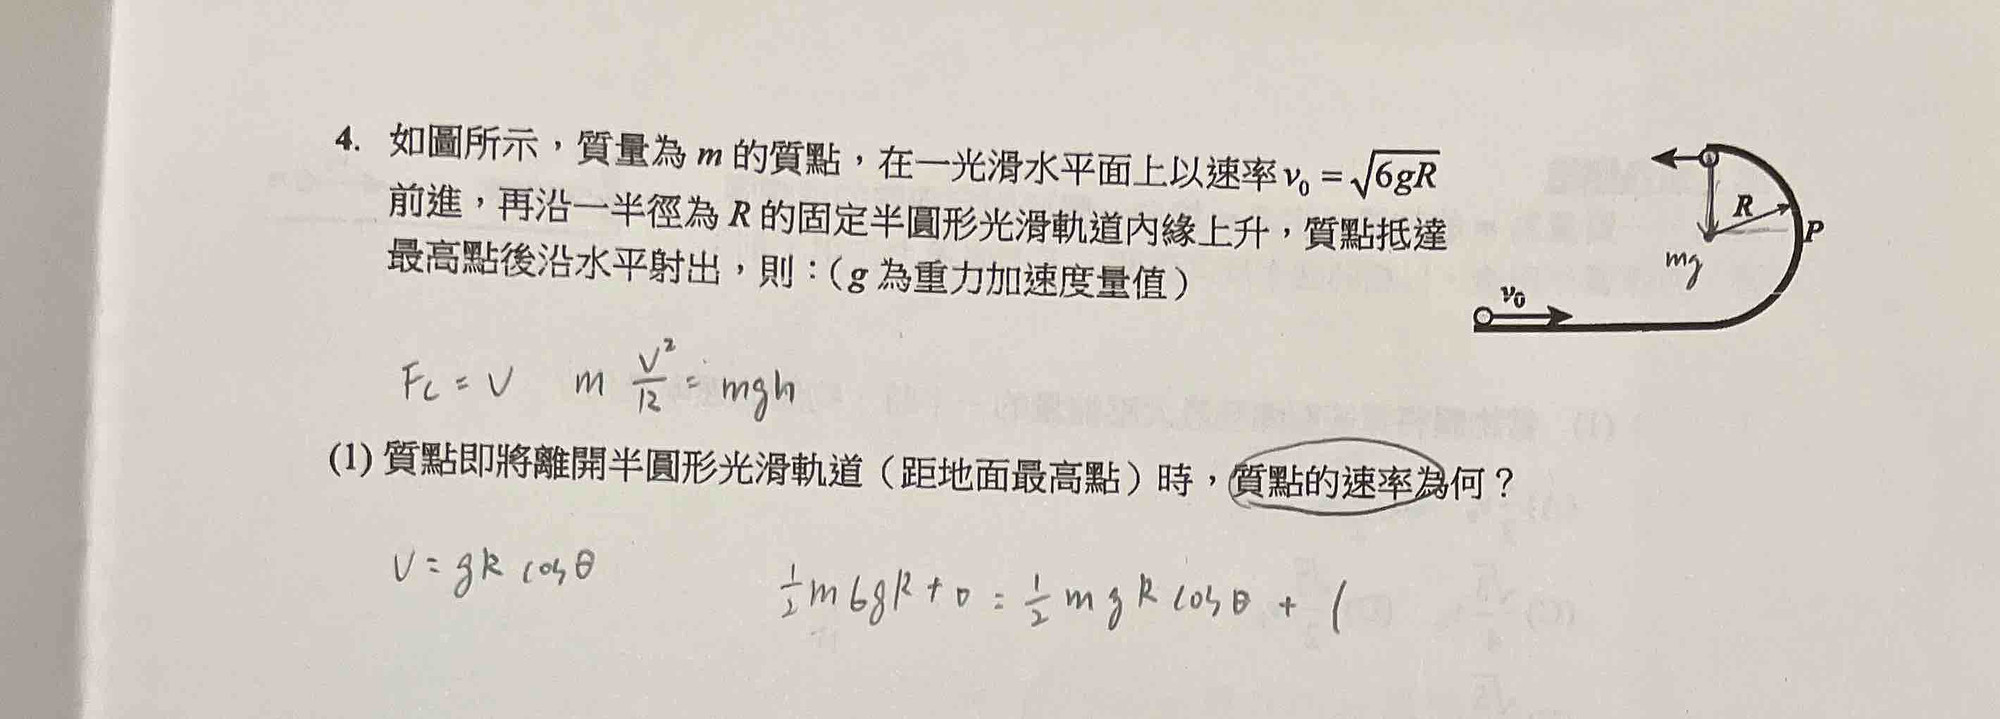 4. 如圖所示，質量為 m 的質點，在一光滑水平面上以速率 v₀ = √6gR
前進，再沿一半徑為 R 的固定半圓形光滑軌道內緣上升，質點抵達
最高點後沿水平射出，則：（g 為重力加速度量值）
R
P
mg
v₀
Fc = V m V²/R = mgh
(1) 質點即將離開半圓形光滑軌道（距地面最高點）時，質點的速率為何？
V = gR cosθ
½ m 6gR + 0 = ½ m g R cosθ + (